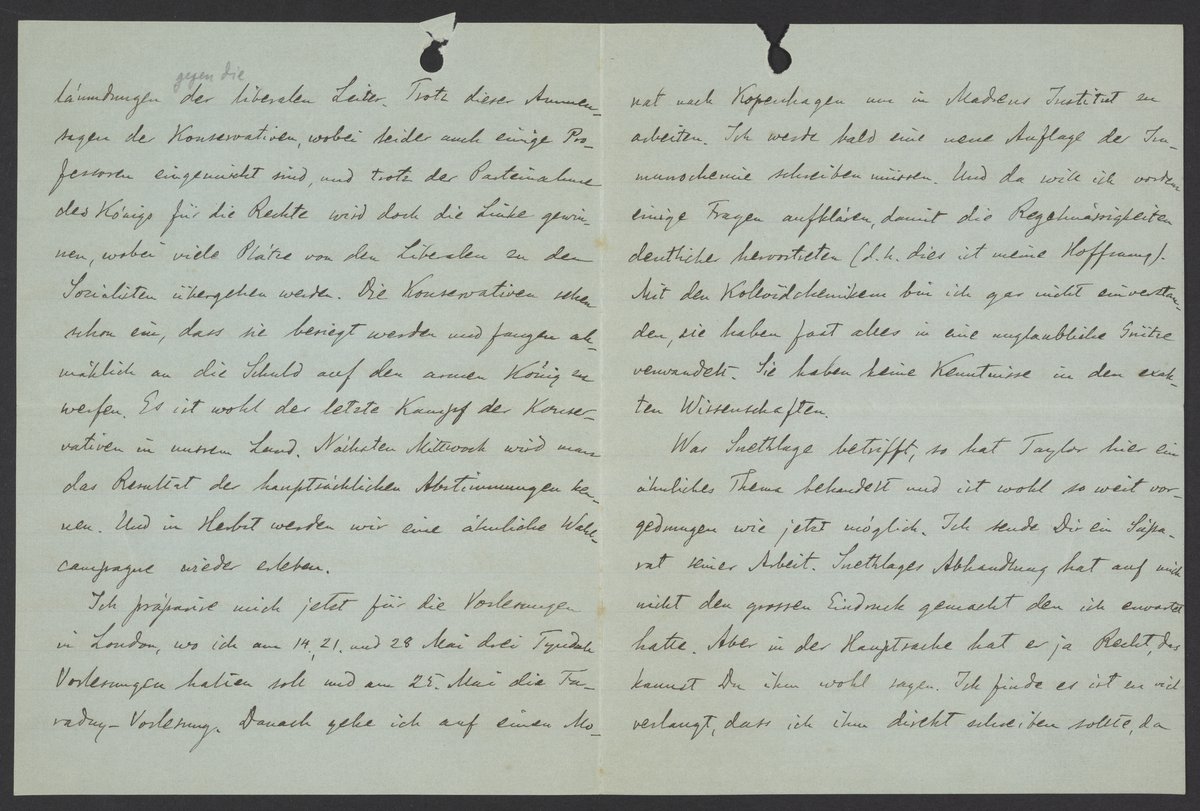 gegen die
läumdungen der liberalen Leiter. Trotz dieser Ammen-
sagen der Konservativen, wobei leider auch einige Pro-
fessoren eingemischt sind, und trotz der Parteinahme
des Königs für die Rechte wird doch die Linke gewin-
nen, wobei viele Plätze von den Liberalen zu den
Socialisten übergehen werden. Die Konservativen sehen
schon ein, dass sie besiegt werden und fangen all-
mählich an die Schuld auf den armen König zu
werfen. Es ist wohl der letzte Kampf der Konser-
vativen in unsrem Land. Nächsten Mittwoch wird man
das Resultat der hauptsächlichen Abstimmungen ken-
nen. Und in Herbst werden wir eine ähnliche Wahl-
campagne wieder erleben.
Ich präpariere mich jetzt für die Vorlesungen
in London, wo ich am 14, 21. und 28 Mai drei Tyndall
Vorlesungen halten soll und am 25. Mai die Fa-
raday-Vorlesung. Danach gehe ich auf einen Mo-
nat nach Kopenhagen um in Madsens Institut zu
arbeiten. Ich werde bald eine neue Auflage der Im-
munochemie schreiben müssen. Und da will ich vordem
einige Fragen aufklären, damit die Regelmässigkeiten
deutlicher hervortreten (d.h. dies ist meine Hoffnung).
Mit den Kolloidchemikern bin ich gar nicht einverstan-
den, sie haben fast alles in eine unglaubliche Grütze
verwandelt. Sie haben keine Kenntnisse in den exak-
ten Wissenschaften.
Was Snethlage betrifft, so hat Taylor hier ein
ähnliches Thema behandelt und ist wohl so weit vor-
gedrungen wie jetzt möglich. Ich sende Dir ein Sepa-
rat seiner Arbeit. Snethlages Abhandlung hat auf mich
nicht den grossen Eindruck gemacht den ich erwartet
hatte. Aber in der Hauptsache hat er ja Recht, das
kannst Du ihm wohl sagen. Ich finde es ist zu viel
verlangt, dass ich ihm direkt schreiben sollte, da